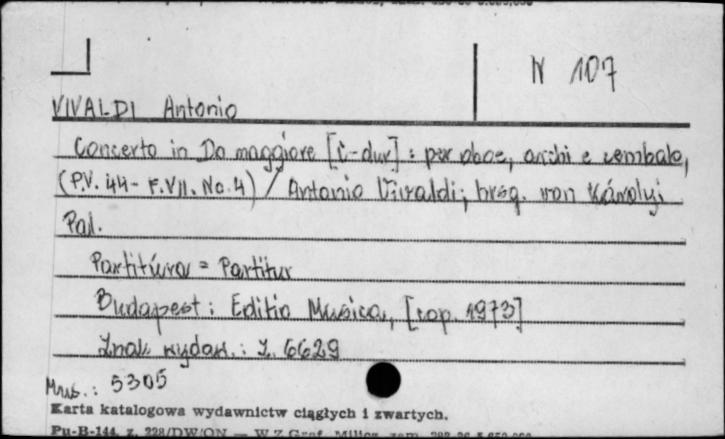 N 107
VIVALDI Antonio
Concerto in Do maggiore [C-dur] : per oboe, archi e cembalo,
(P.V. 44 - F.VII. No. 4) / Antonio Vivaldi ; hrsg. von Károlyi
Pal.
Partitúra = Partitur
Budapest : Editio Musica, [cop. 1973]
Znak wydaw. : Z. 6629
Mus. : 5305
Karta katalogowa wydawnictw ciągłych i zwartych.
Pu-B-144, z. 228/DW/ON — W.Z.Graf. Milicz, zam.